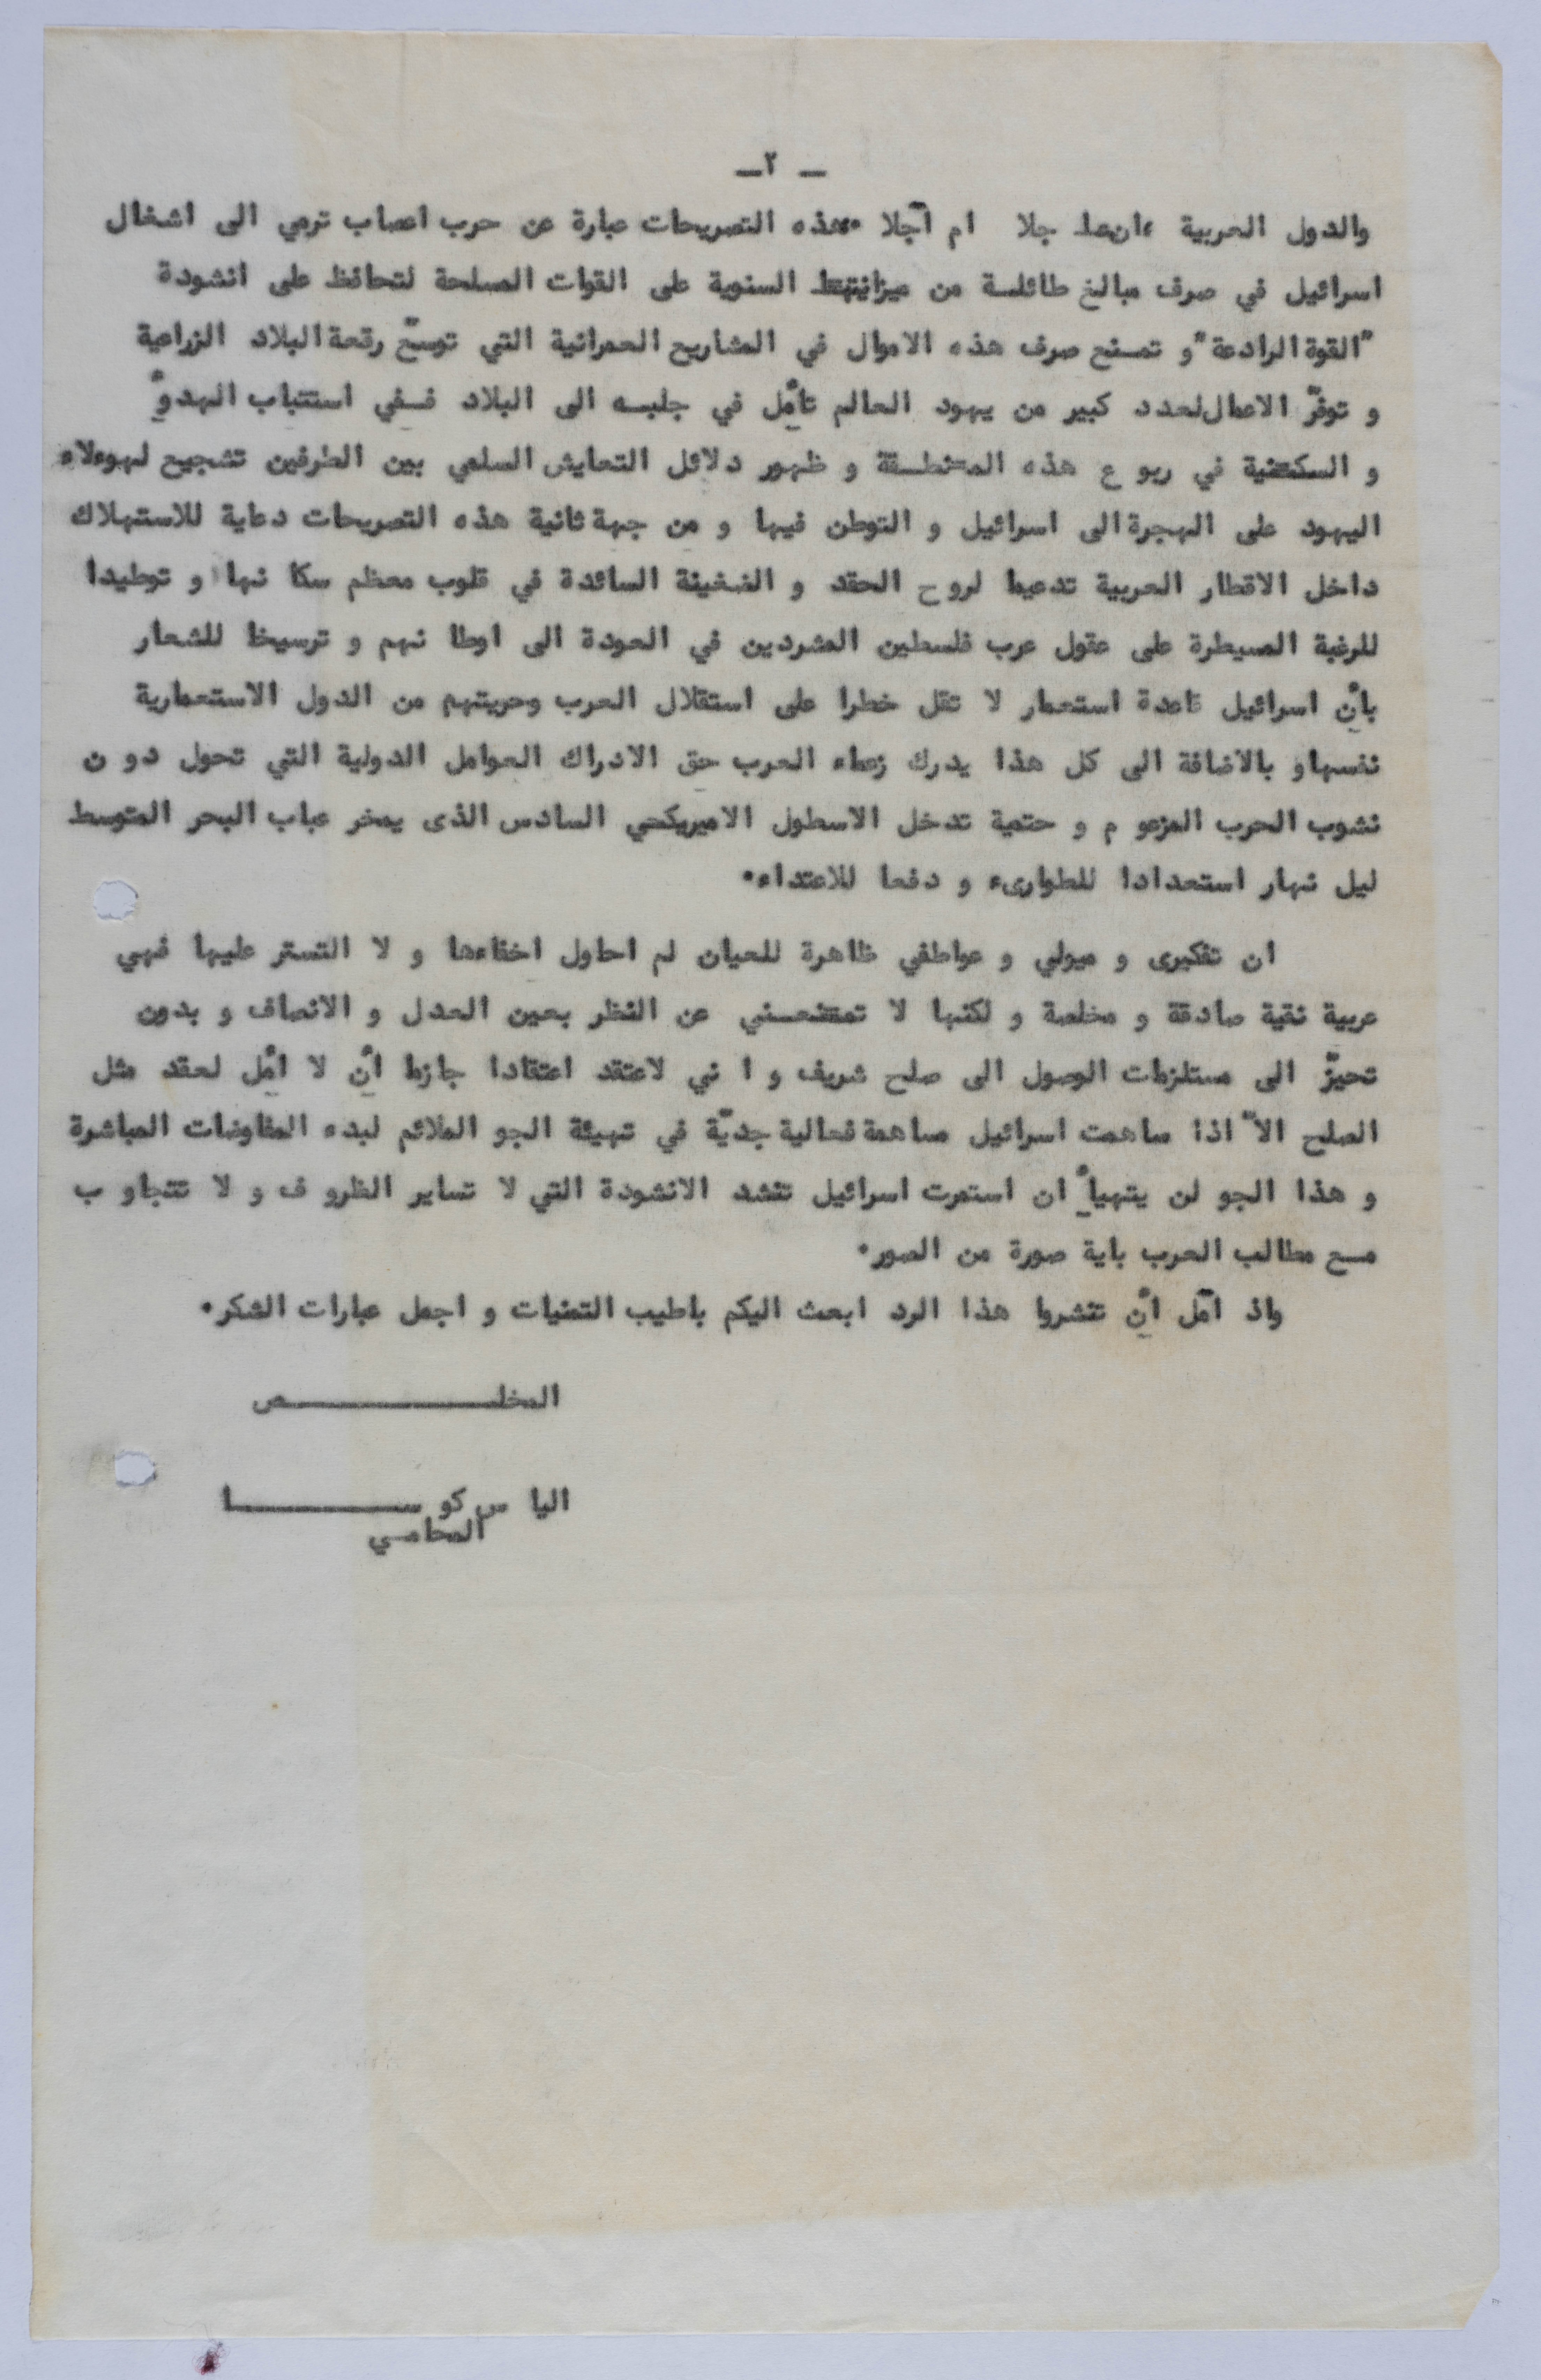 ــ ٢ــ
والدول العربية ،ان عا جلا ام آجلا فهذه التصريحات عبارة عن حرب اعصاب ترمي الى اشغال
اسرائيل في صرف مبالغ طائلـة من ميزانيتها السنوية على القوات المسلحة لتحافظ على انشودة
"القوة الرادعة" و تمـنع صرف هذه الاموال في المشاريع العمرانية التي توسّع رقعة البلاد الزراعية
و توفرّ الاعمال لعدد كبير من يهود العالم تأمل في جلبـه الى البلاد فـفي استتباب الهدوّ
و السكنية في ربو ع هذه المنطـقة و ظهور دلائل التعايش السلمي بين الطرفين تشجيع لهوءلاء
اليهود على الهجرة الى اسرائيل و التوطن فيها و من جهة ثانية هذه التصريحات دعاية للاستهلاك
داخل الاقطار العربية تدعيما لروح الحقد و الضغينة السائدة في قلوب معظم سكا نها و توطيدا
للرغبة المسيطرة على عقول عرب فلسطين المشردين في العودة الى اوطا نهم و ترسيخا للشعار
بأن اسرائيل قاعدة استعمار لا تقل خطرا على استقلال العرب وحريتهم من الدول الاستعمارية
نفسها و بالاضافة الى كل هذا يدرك زعماء العرب حق الادراك العوامل الدولية التي تحول دو ن
نشوب الحرب المزعو م و حتمية تدخل الاسطول الاميريكي السادس الذى يمخر عباب البحر المتوسط
ليل نهار استعدادا للطوارىء و دفعا للاعتداء.
ان تفكيرى و ميولي و عواطفي ظاهرة للعيان لم احاول اخفاءها و لا التستر عليها فهي
عربية نقية صادقة و مخلصة و لكنها لا تمنعـني عن النظر بعين العدل و الانصاف و بدون
تحيزّ الى مستلزمات الوصول الى صلح شريف و ا ني لاعتقد اعتقادا جازما أن لا أمل لعقد مثل
الصلح الاّ اذا ساهمت اسرائيل مساهمة فعالية جديّة في تهيئة الجو الملائم لبدء المفاوضات المباشرة
و هذا الجو لن يتهيأ ان استمرت اسرائيل تنشد الانشودة التي لا تساير الظرو ف و لا تتجاو ب
مـع مطالب العرب باية صورة من الصور.
واذ آمل أن تنشروا هذا الرد ابعث اليكم باطيب التمنيات و اجمل عبارات الشكر.
المخلــــــــــص
اليا س كو ســــــــا
المحامـي